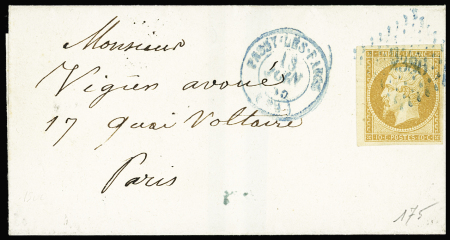 Monsieur
Vigier avoué
17 Quai Voltaire
Paris
PASSY-LES-PARIS
13
JUIN
10 C POSTES 10 C
175